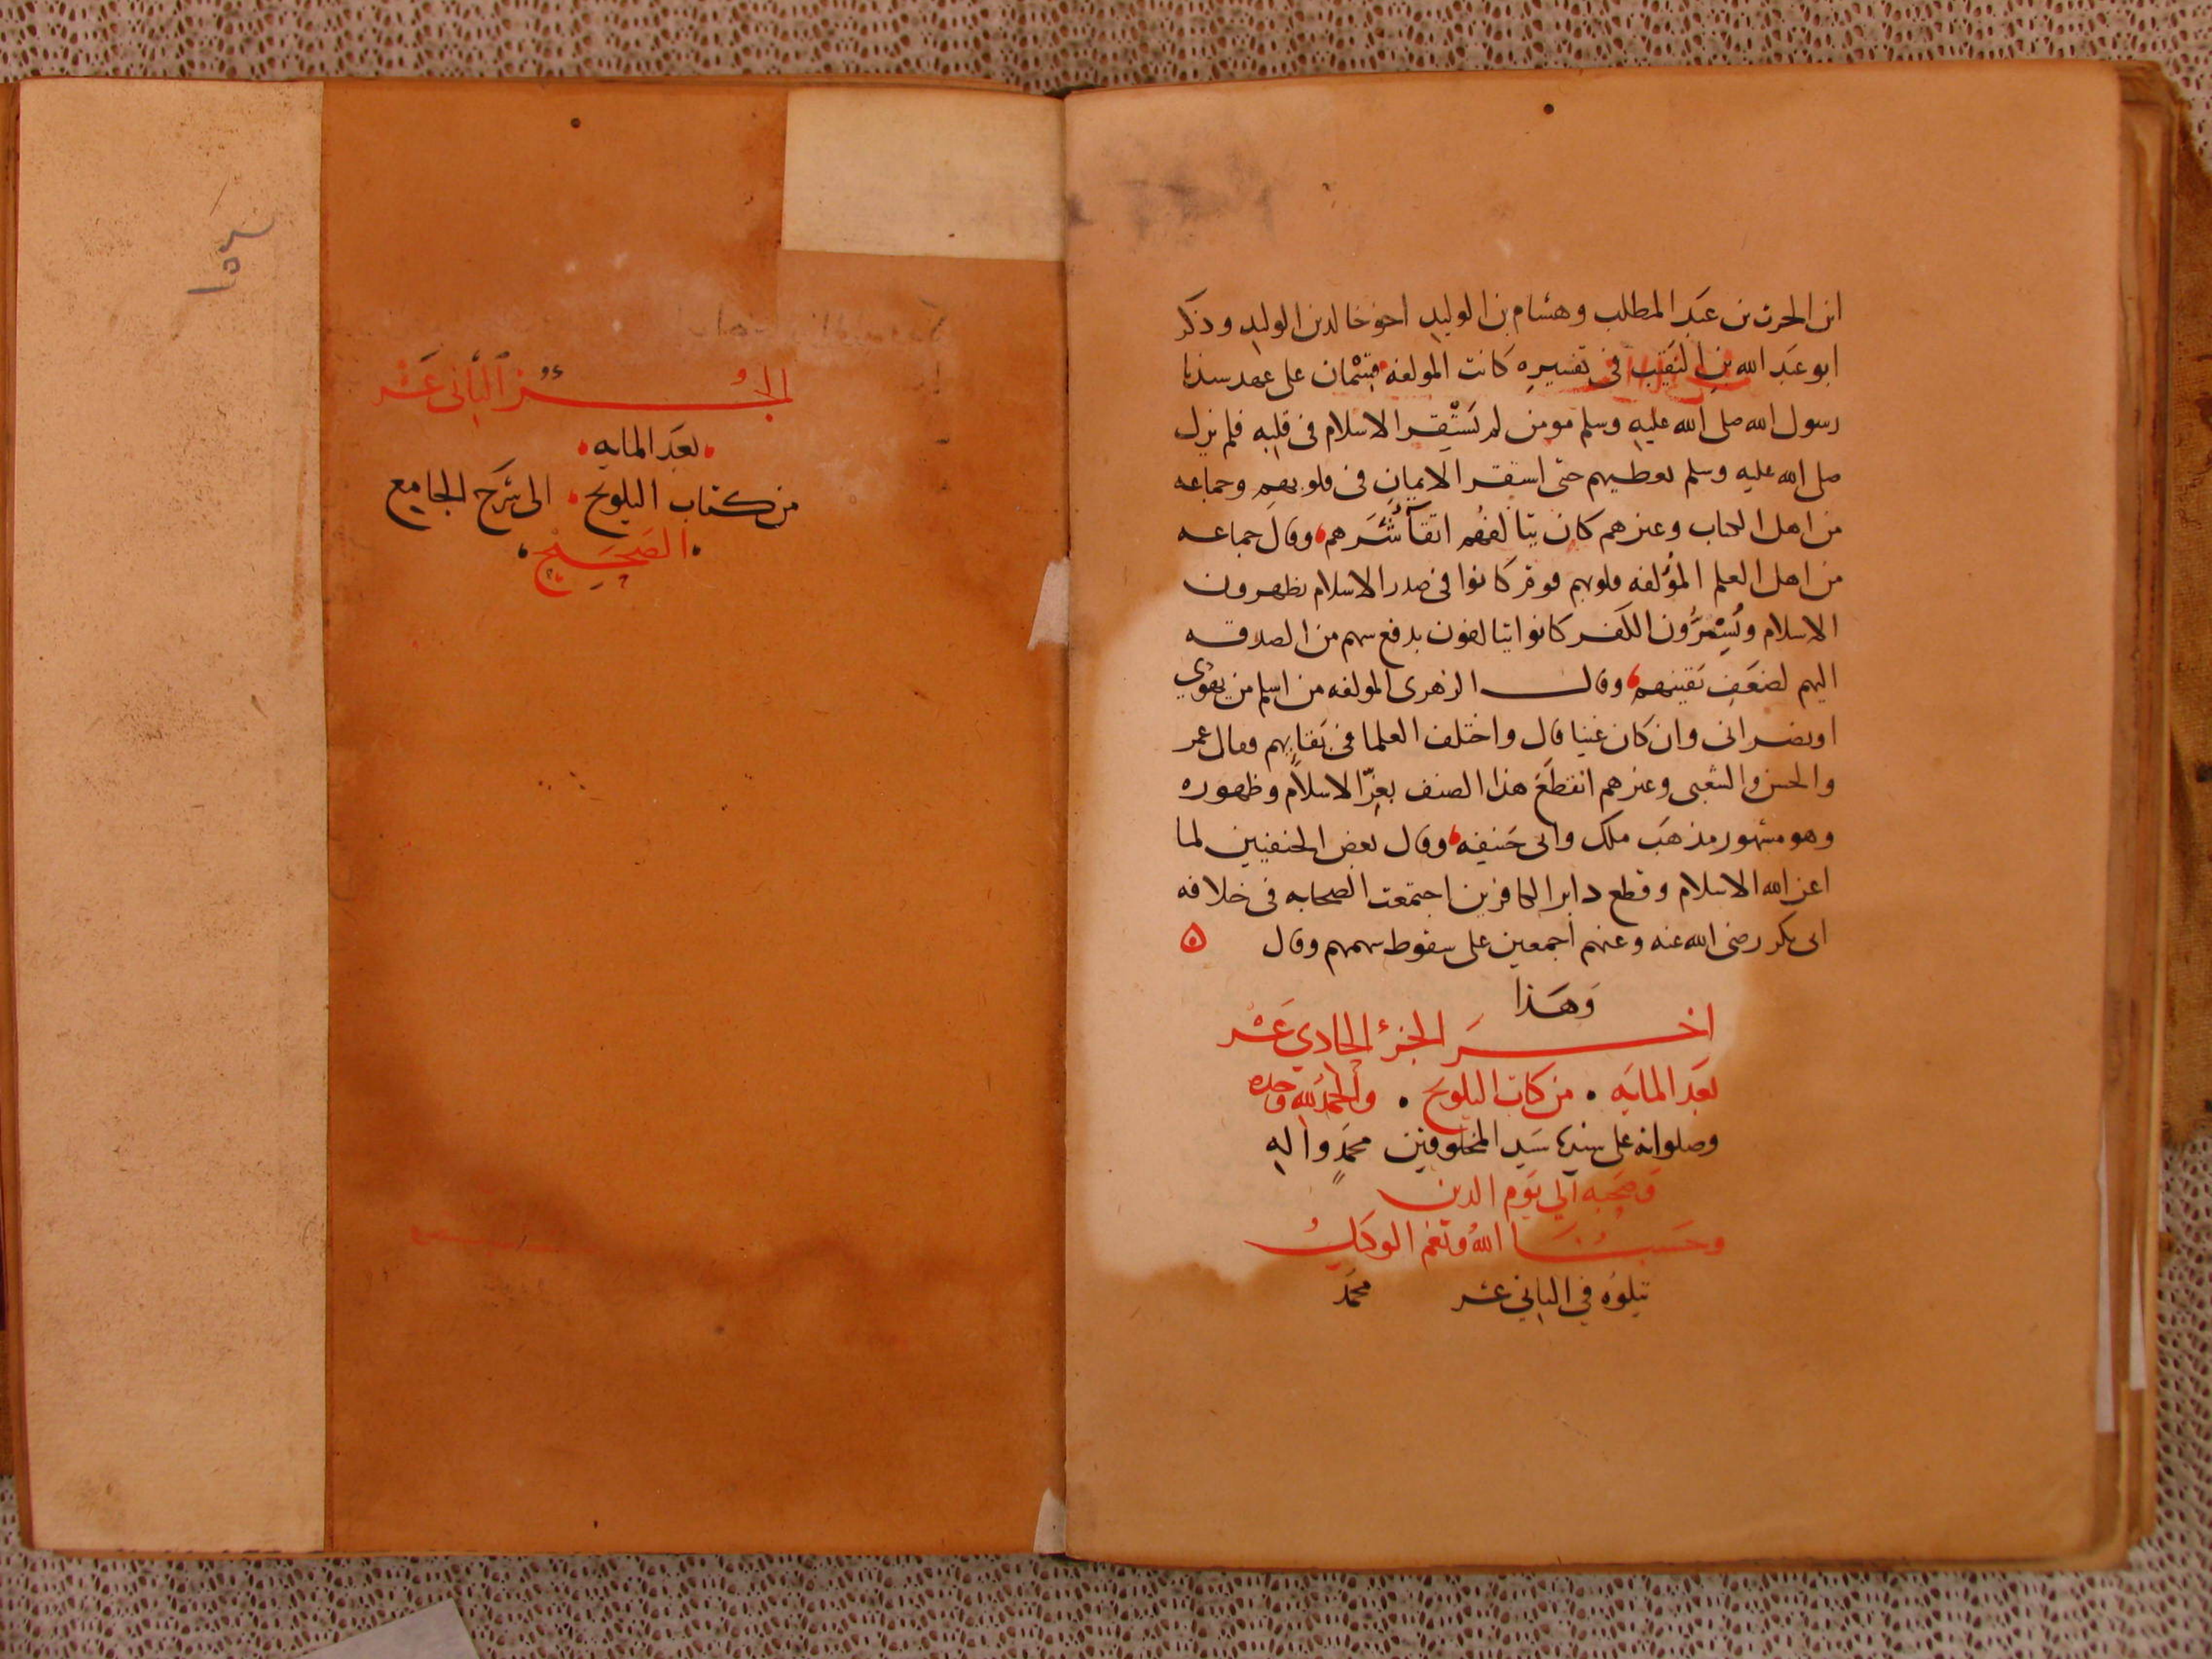 ابن الحرث بن عبد المطلب وهشام بن الوليد اخو خالد بن الوليد وذكر
ابو عبد الله بن النقيب في تفسيره كانت المولفة قسمان على عهد سيدنا
رسول الله صلى الله عليه وسلم مومن لم يستقر الاسلام في قلبه فلم يزل
صلى الله عليه وسلم يعطيهم حتى استقر الايمان في قلوبهم وجماعه
من اهل الكتاب وغيرهم كان يتالفهم اتقآ شرهم وقال جماعه
من اهل العلم المؤلفه قلوبهم قوم كانوا في صدر الاسلام يظهرون
الاسلام ويُسِرُّون الكفر كانوا يتالفون بدفع سهم من الصدقه
اليهم لضعف يقينهم وقال الزهري المولفه من اسلم من يهودي
او نصراني وان كان غنيا قال واختلف العلما في بقايهم فقال عمر
والحسن والشعبي وغيرهم انقطع هذا الصنف بعزّ الاسلام وظهوره
وهو مشهور مذهب ملك وابي حنيفه وقال بعض الحنفيين لما
اعز الله الاسلام وقطع دابر الكافرين اجتمعت الصحابه في خلافه
ابي بكر رضي الله عنه وعنهم اجمعين على سقوط سهمهم وقال ه
وهذا
اخر الجزء الحادي عشر
بعد المايه • من كتاب التلويح • والحمد لله وحده
وصلواته على سيدنا سيد المخلوقين محمد واله
وصحبه الى يوم الدين
وحسبنا الله ونعم الوكيل
يتلوه في الثاني عشر محمد
الجزء الثاني عشر
بعد المايه
من كتاب التلويح الى شرح الجامع
الصحيح